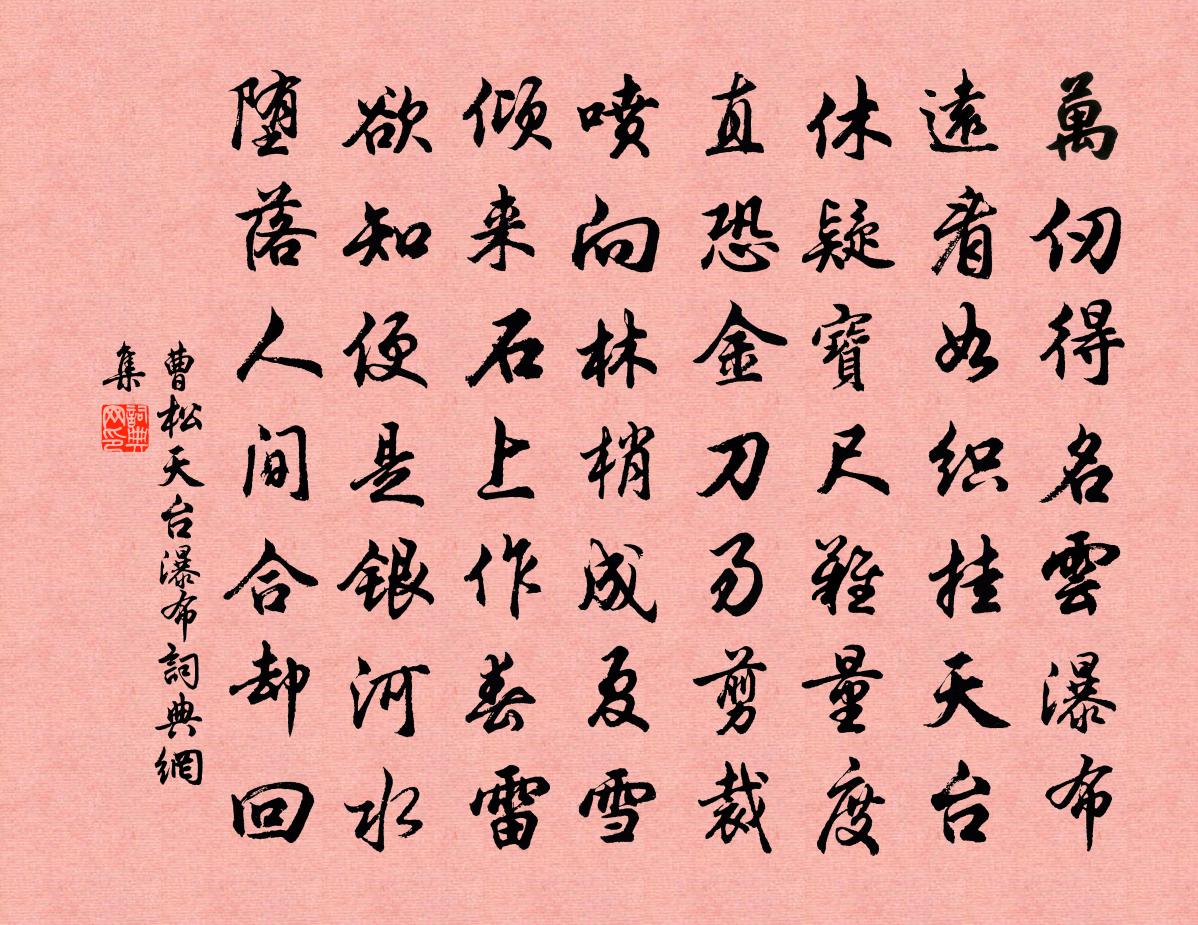 萬仞得名雲瀑布
遠看如织挂天台
休疑寶尺難量度
直恐金刀易剪裁
噴向林梢成夏雪
倾来石上作春雷
欲知便是銀河水
堕落人间合却回
曹松天台瀑布詞典網
集
詞典
网印